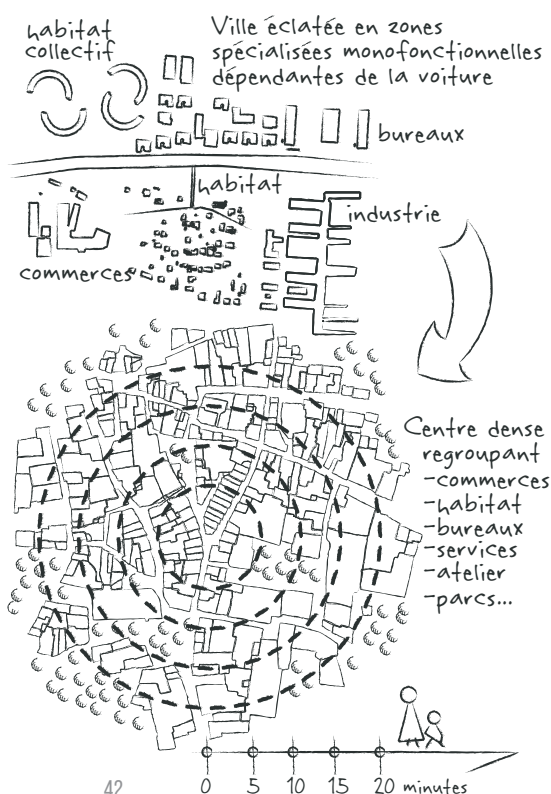 habitat
collectif
Ville éclatée en zones
spécialisées monofonctionnelles
dépendantes de la voiture
bureaux
habitat
industrie
commerces
Centre dense
regroupant
-commerces
-habitat
-bureaux
-services
-atelier
-parcs...
0 5 10 15 20 minutes
42